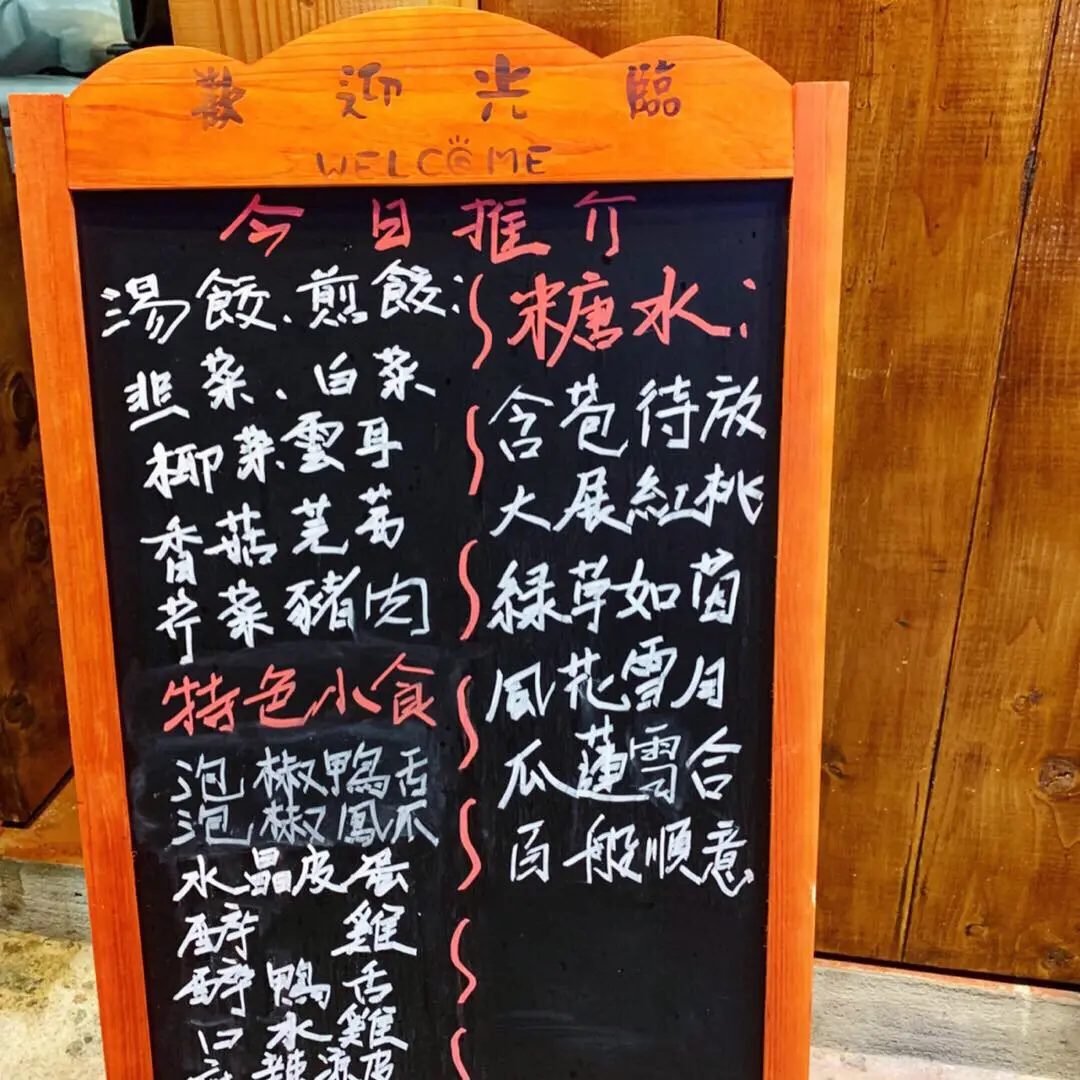 歡迎光臨
WELCOME
今日推介
湯餃、煎餃:
韮菜、白菜
椰菜雲耳
香菇芫茜
芹菜豬肉
特色小食
泡椒鴨舌
泡椒鳳爪
水晶皮蛋
醉 雞
醉鴨舌
口水雞
辣涼皮
糖水:
含苞待放
大展紅桃
綠草如茵
風花雪月
瓜蓮雪合
百般順意